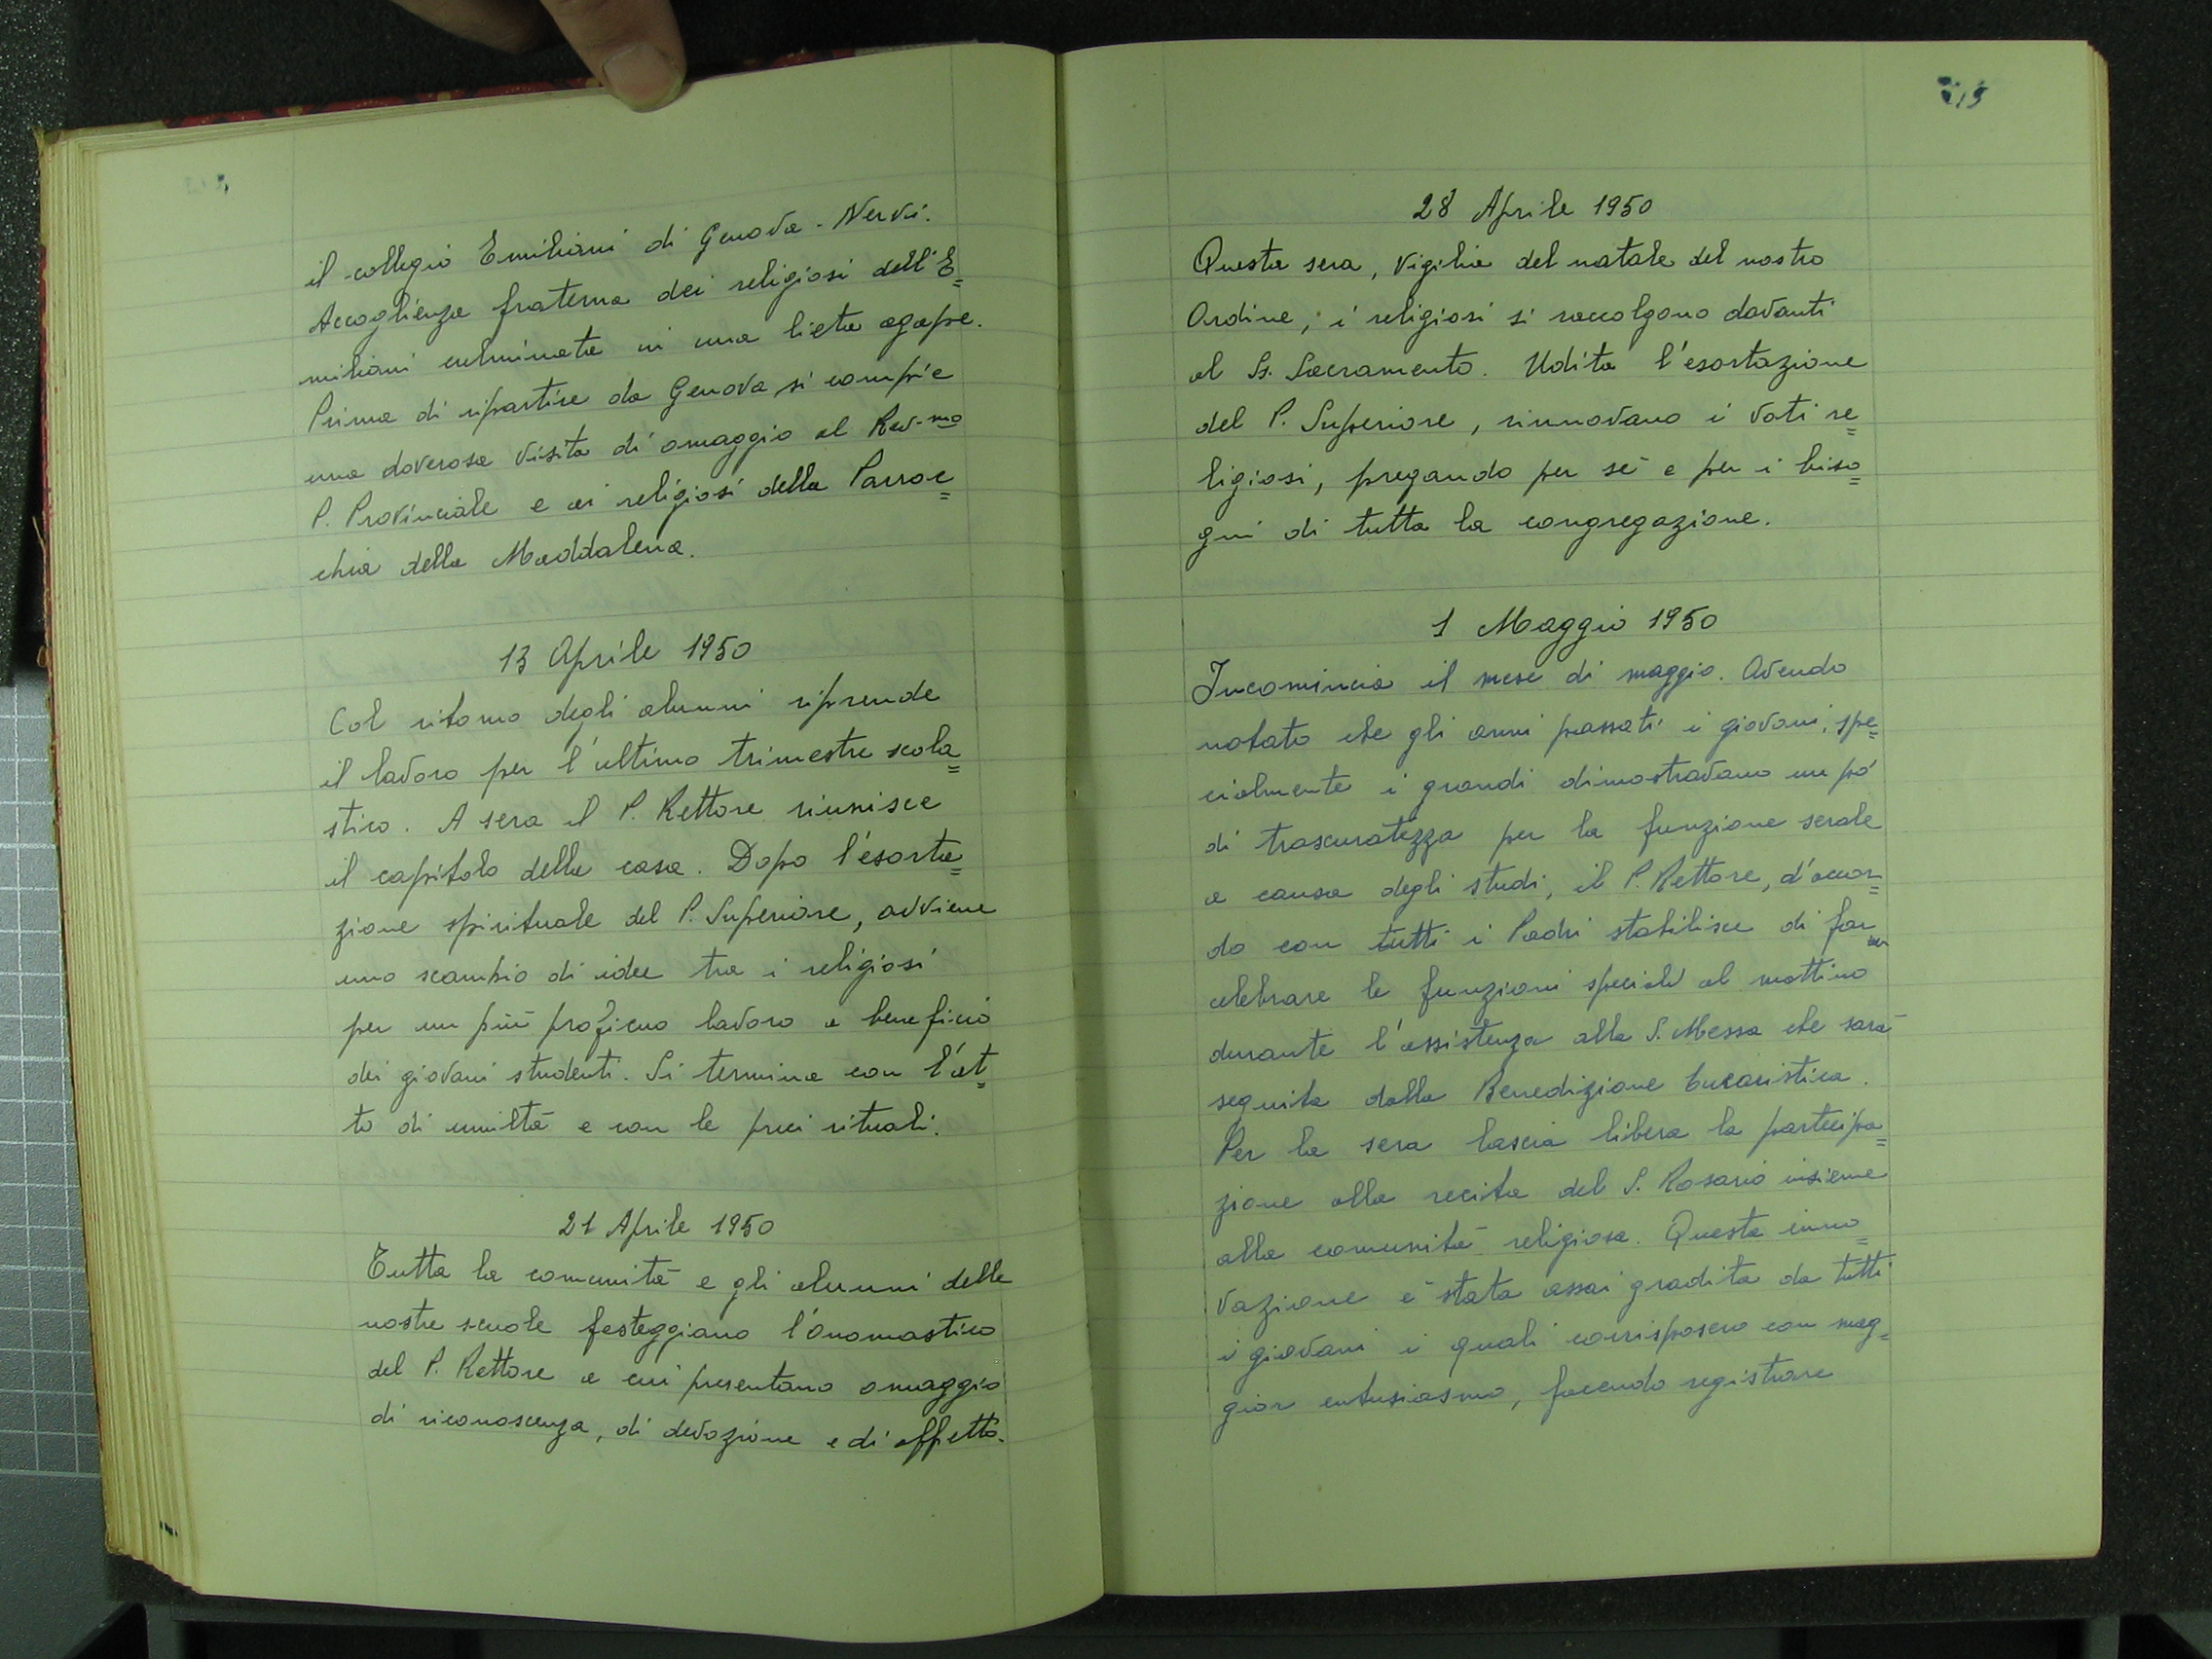 il collegio Emiliani di Genova-Nervi.
Accoglienza fraterna dei religiosi dell'E=
miliani culminata in una lieta agape.
Prima di ripartire da Genova, si compie
una doverosa visita di omaggio al Rev-mo
P. Provinciale e ai religiosi della Parroc=
chia della Maddalena.
13 Aprile 1950
Col ritorno degli alunni riprende
il lavoro per l'ultimo trimestre scola=
stico. A sera il P. Rettore riunisce
il capitolo della casa. Dopo l'esorta=
zione spirituale del P. Superiore, avviene
uno scambio di idee tra i religiosi
per un più proficuo lavoro a beneficio
dei giovani studenti. Si termina con l'at=
to di umiltà e con le preci rituali.
21 Aprile 1950
Tutta la comunità e gli alunni delle
nostre scuole festeggiano l'onomastico
del P. Rettore a cui presentano omaggio
di riconoscenza, di devozione e di affetto.
28 Aprile 1950
Questa sera, vigilia del natale del nostro
Ordine, i religiosi si raccolgono davanti
al Ss. Sacramento. Udita l'esortazione
del P. Superiore, rinnovano i voti re=
ligiosi, pregando per sé e per i biso=
gni di tutta la congregazione.
1 Maggio 1950
Incomincia il mese di maggio. Avendo
notato che gli anni passati i giovani, spe=
cialmente i grandi dimostravano un pó
di trascuratezza per la funzione serale
a causa degli studi, il P. Rettore, d'accor=
do con tutti i Padri stabilisce di far
celebrare le funzioni speciali al mattino
durante l'assistenza alla S. Messa che sarà
seguita dalla Benedizione Eucaristica.
Per la sera lascia libera la partecipa=
zione alla recita del S. Rosario insieme
alla comunità religiosa. Questa inno=
vazione è stata assai gradita da tutti
i giovani i quali corrisposero con mag=
gior entusiasmo, facendo registrare